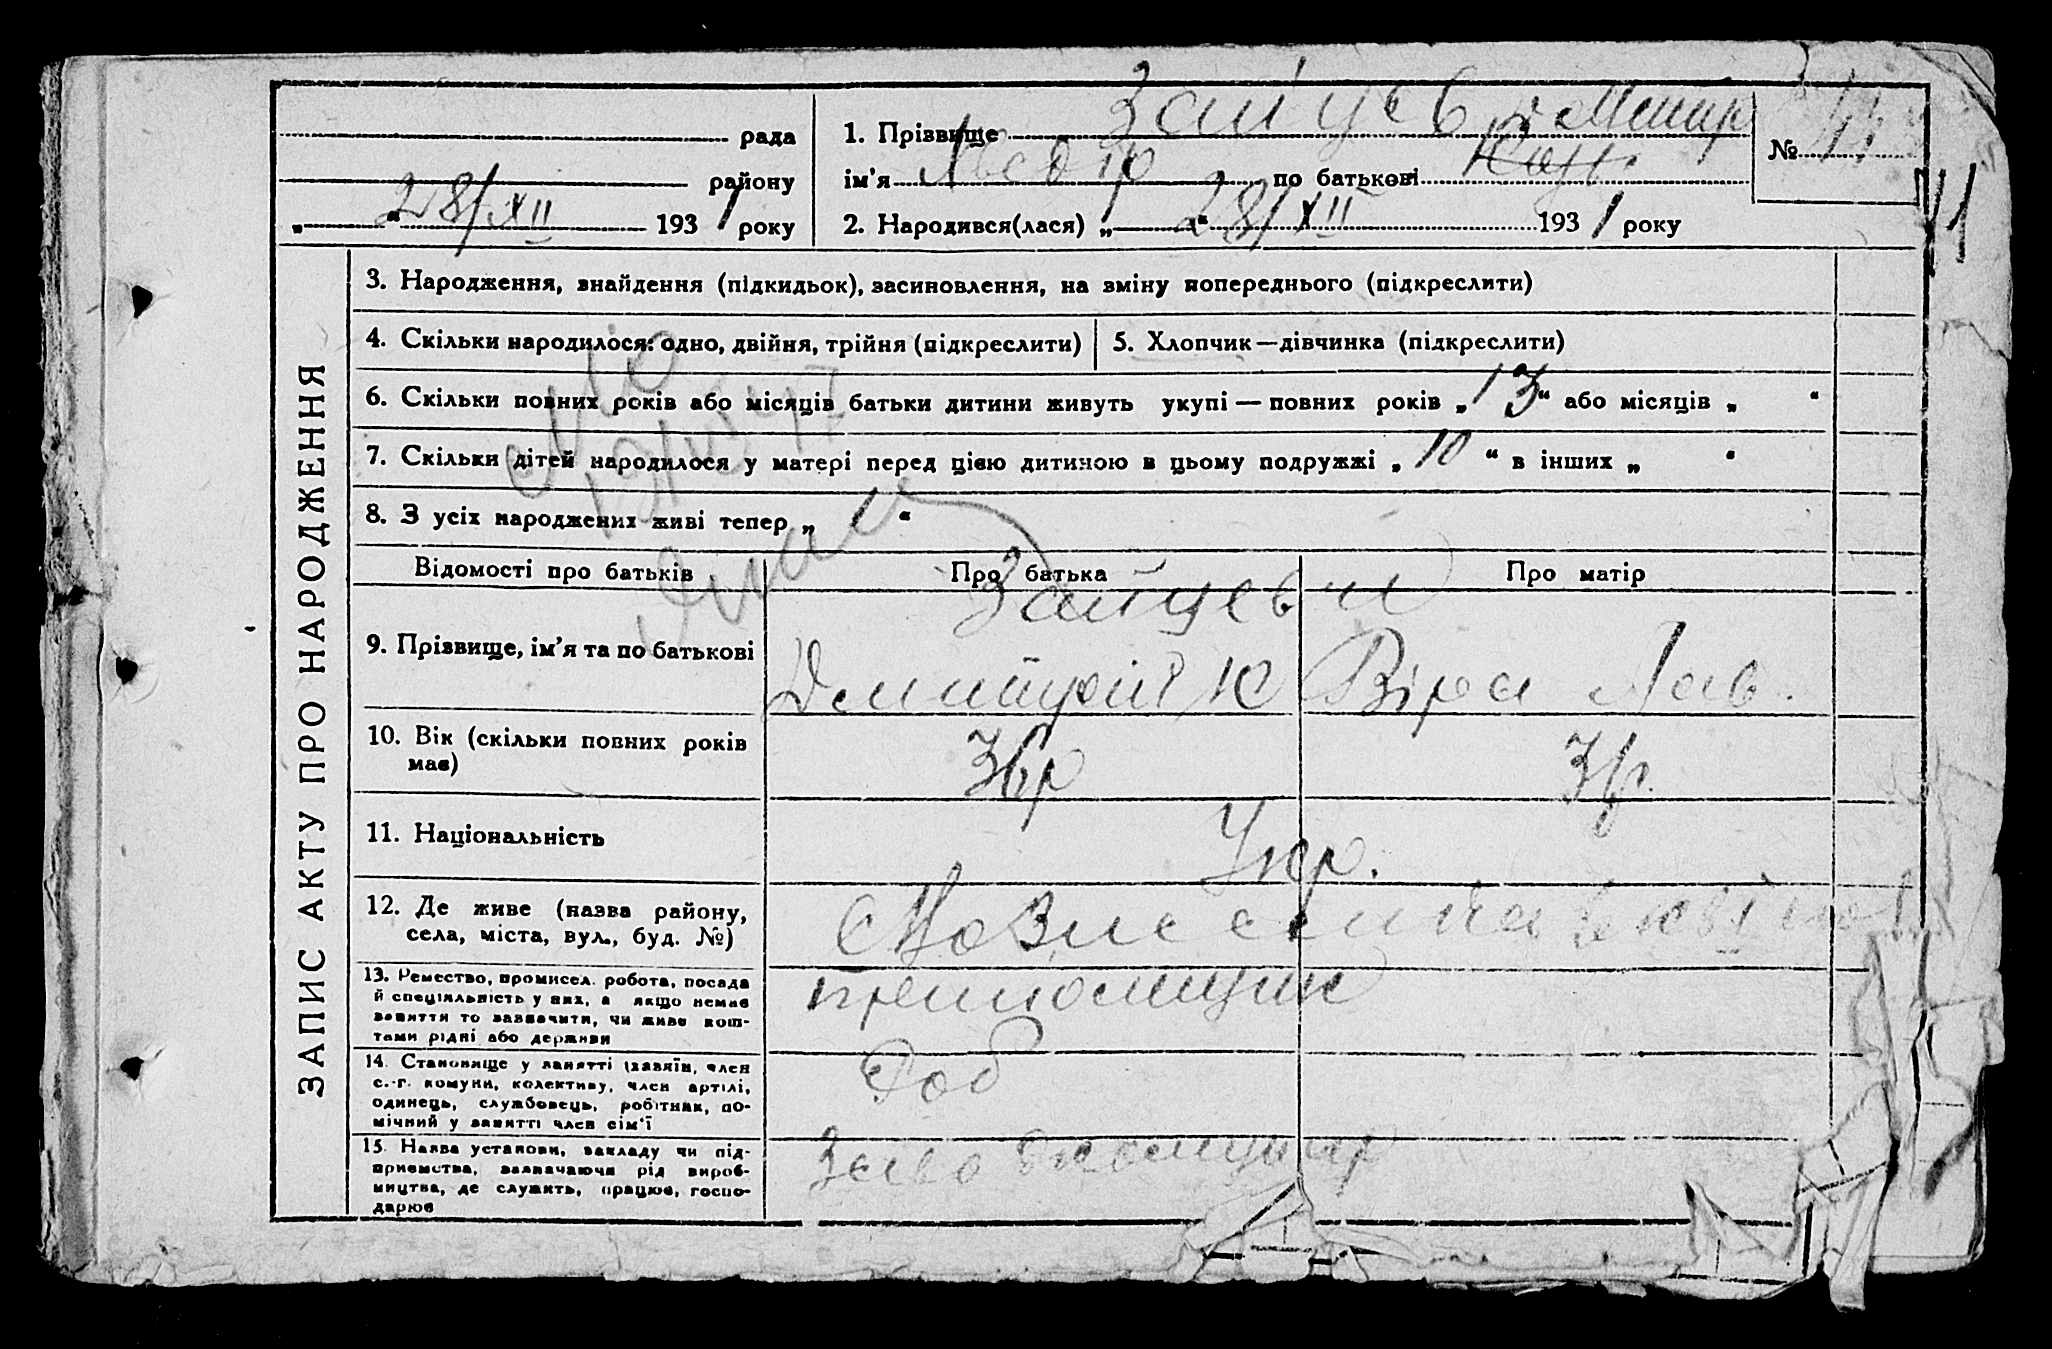 ЗАПИС АКТУ ПРО НАРОДЖЕННЯ
рада
району
„ 28/XII “ 1931 року
1. Прізвище Зайцев
ім'я по батькові
№
41
2. Народився(лася) „ 28/XII “ 1931 року
3. Народження, знайдення (підкидьок), засиновлення, на зміну попереднього (підкреслити)
4. Скільки народилося: одно, двійня, трійня (підкреслити)
5. Хлопчик—дівчинка (підкреслити)
6. Скільки повних років або місяців батьки дитини живуть укупі — повних років „ 13 “ або місяців „ “
7. Скільки дітей народилося у матері перед цією дитиною в цьому подружжі „ 10 “ в інших „ “
8. З усіх народжених живі тепер „ 1 “
Відомості про батьків
Про батька
Про матір
Зайцеви
9. Прізвище, ім'я та по батькові
Дмитрий Ю
Віра Лав.
10. Вік (скільки повних років
має)
36р
31р.
11. Національність
Укр.
12. Де живе (назва району,
села, міста, вул., буд. №)
13. Ремество, промисел, робота, посада
й спеціяльність у них, а якщо немає
заняття то зазначити, чи живе кош-
тами рідні або держави
14. Становище у занятті (хазяїн, член
с.-г. комуни, колективу, член артілі,
одинець, службовець, робітник, по-
мічний у занятті член сім'ї
Роб
15. Назва установи, закладу чи під-
приємства, зазначаючи рід вироб-
ництва, де служить, працює, госпо-
дарює